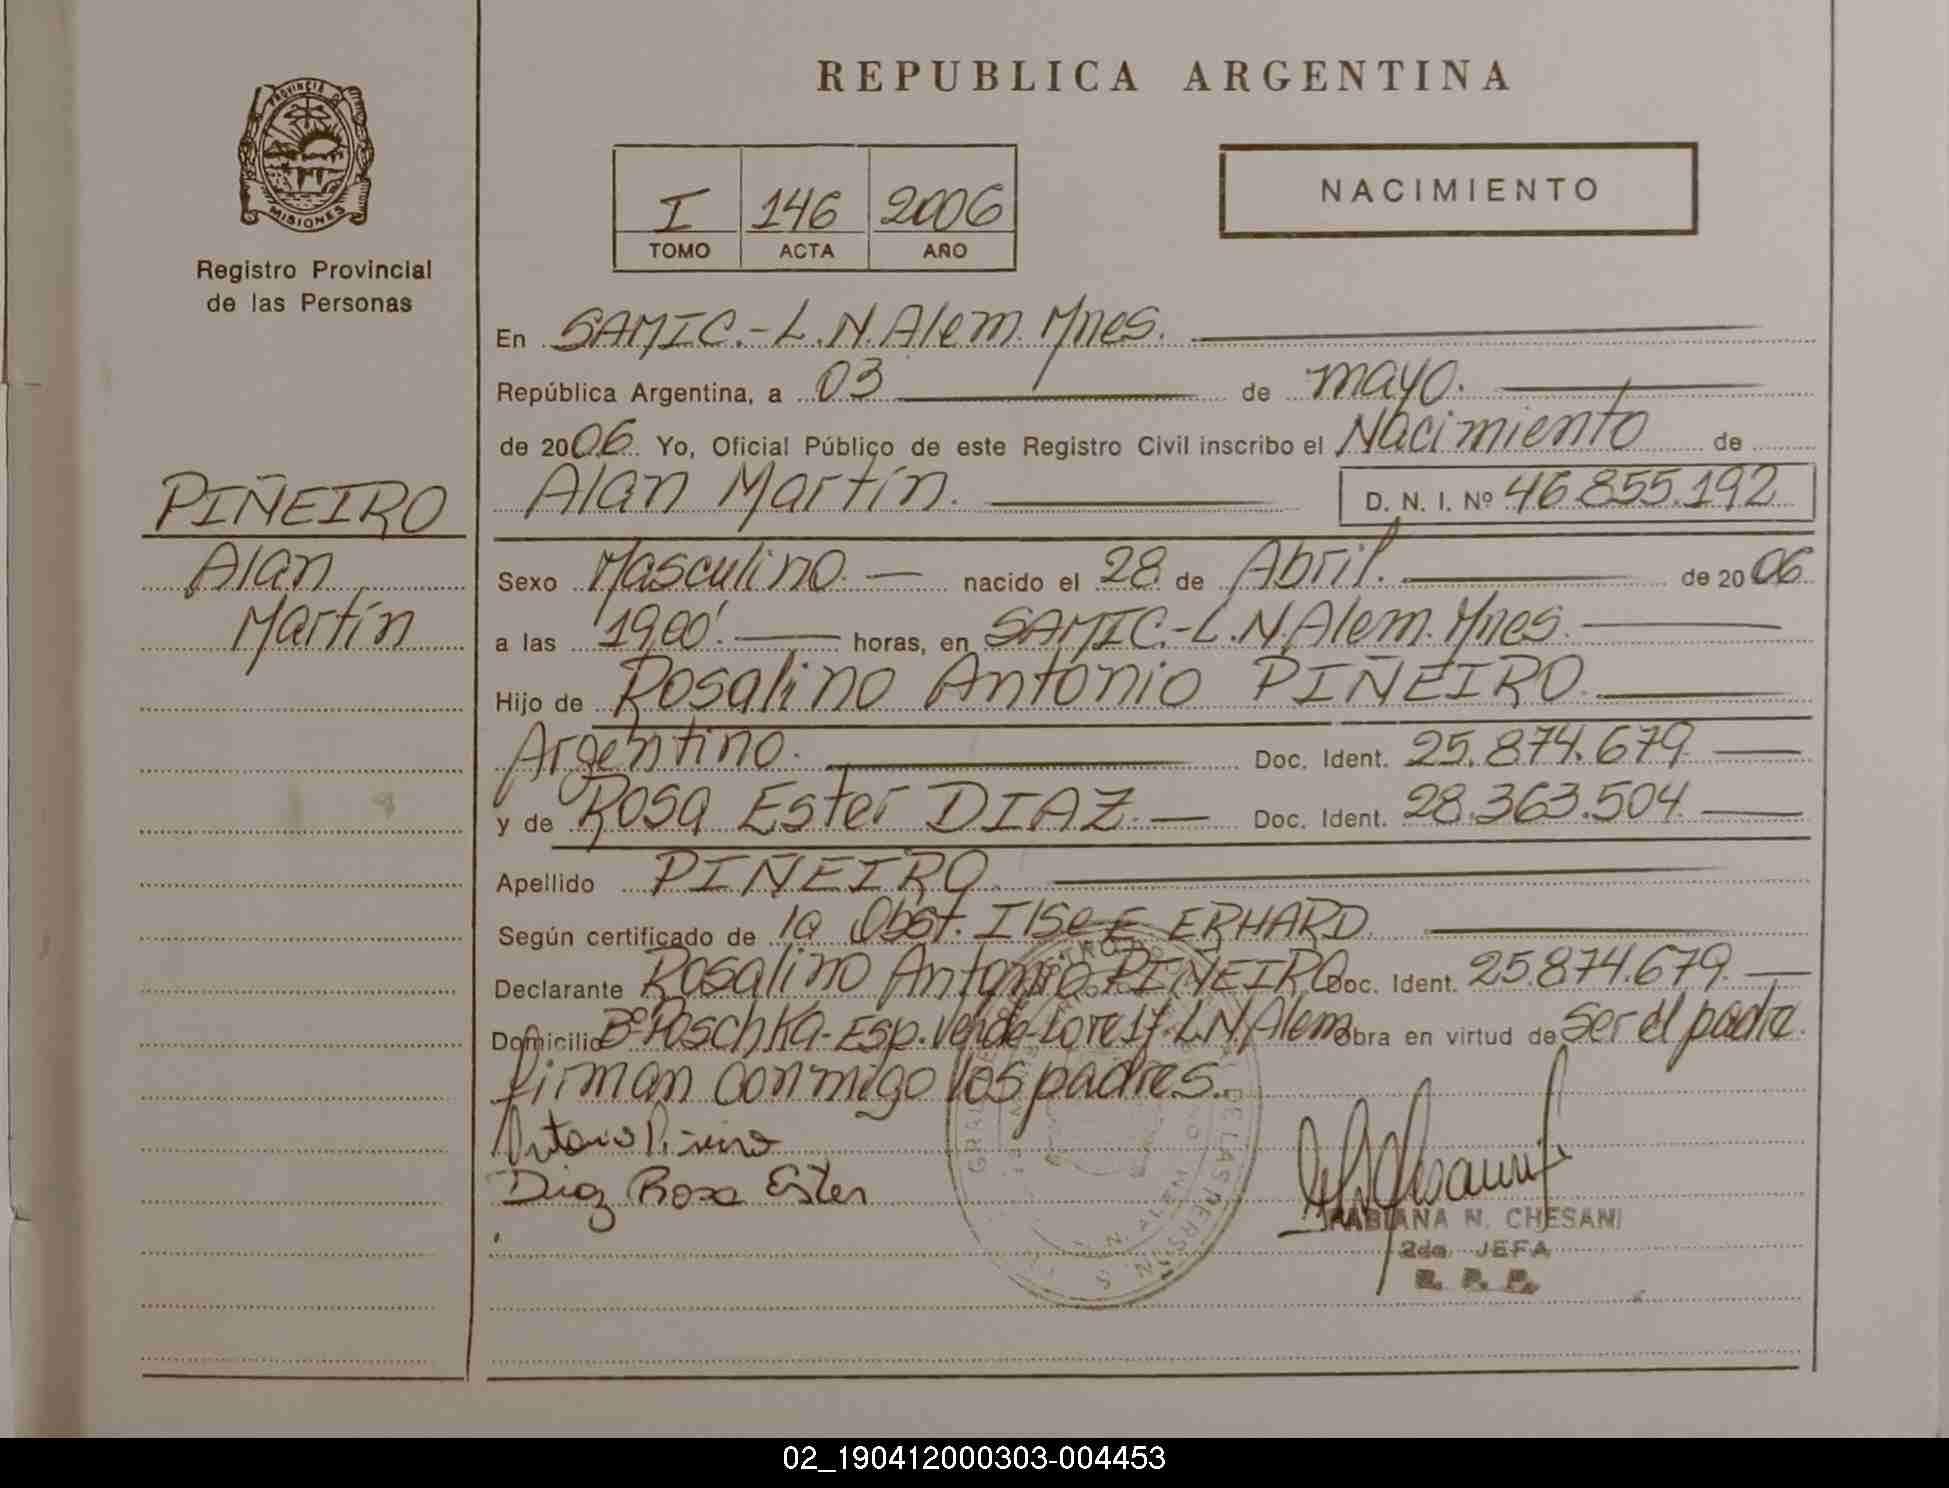 REPUBLICA ARGENTINA
PROVINCIA DE
MISIONES
Registro Provincial
de las Personas
I 146 2006
TOMO ACTA AÑO
NACIMIENTO
En SAMIC.-L.N.Alem. Mnes.
República Argentina, a 03 de mayo.
de 2006. Yo, Oficial Público de este Registro Civil inscribo el Nacimiento de
Alan Martín. D. N. I. Nº 46.855.192
PIÑEIRO
Alan
Martín
Sexo Masculino. nacido el 28 de Abril. de 2006
a las 19,00'. horas, en SAMIC.-L.N.Alem. Mnes.
Hijo de Rosalino Antonio PIÑEIRO.
Argentino. Doc. Ident. 25.874.679
y de Rosa Ester DIAZ. Doc. Ident. 28.363.504.
Apellido PIÑEIRO.
Según certificado de la Obst. Ilse E ERHARD.
Declarante Rosalino Antonio PIÑEIRO Doc. Ident. 25.874.679.
Domicilio Bº Poschka-Esp.Verde-Lote 17. L.N.Alem Obra en virtud de ser el padre.
firman conmigo los padres.
Antonio Piñeiro
Diaz Rosa Ester
FABIANA N. CHESANI
2da. JEFA
R. P. P.
02_190412000303-004453